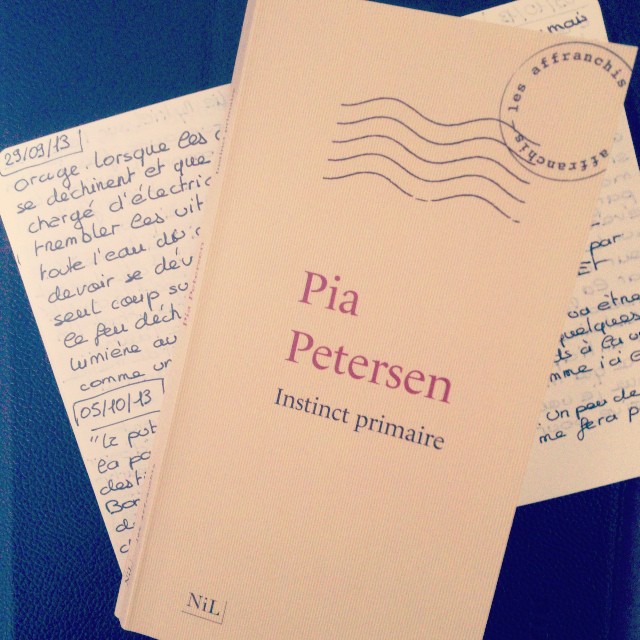 les affranchis
les affranchis
Pia
Petersen
Instinct primaire
NiL
Pia Peter
29/09/13
orage. Lorsque les
se déchinent et que
chargé d'électric
trembler les vit
toute l'eau
devoir se dév
seul coup su
le feu déch
lumière au
comme un
05/10/13
la pa
desti
mais
par
ET
va être
quelques
à la
mme j'ai
un peu de
me fera p